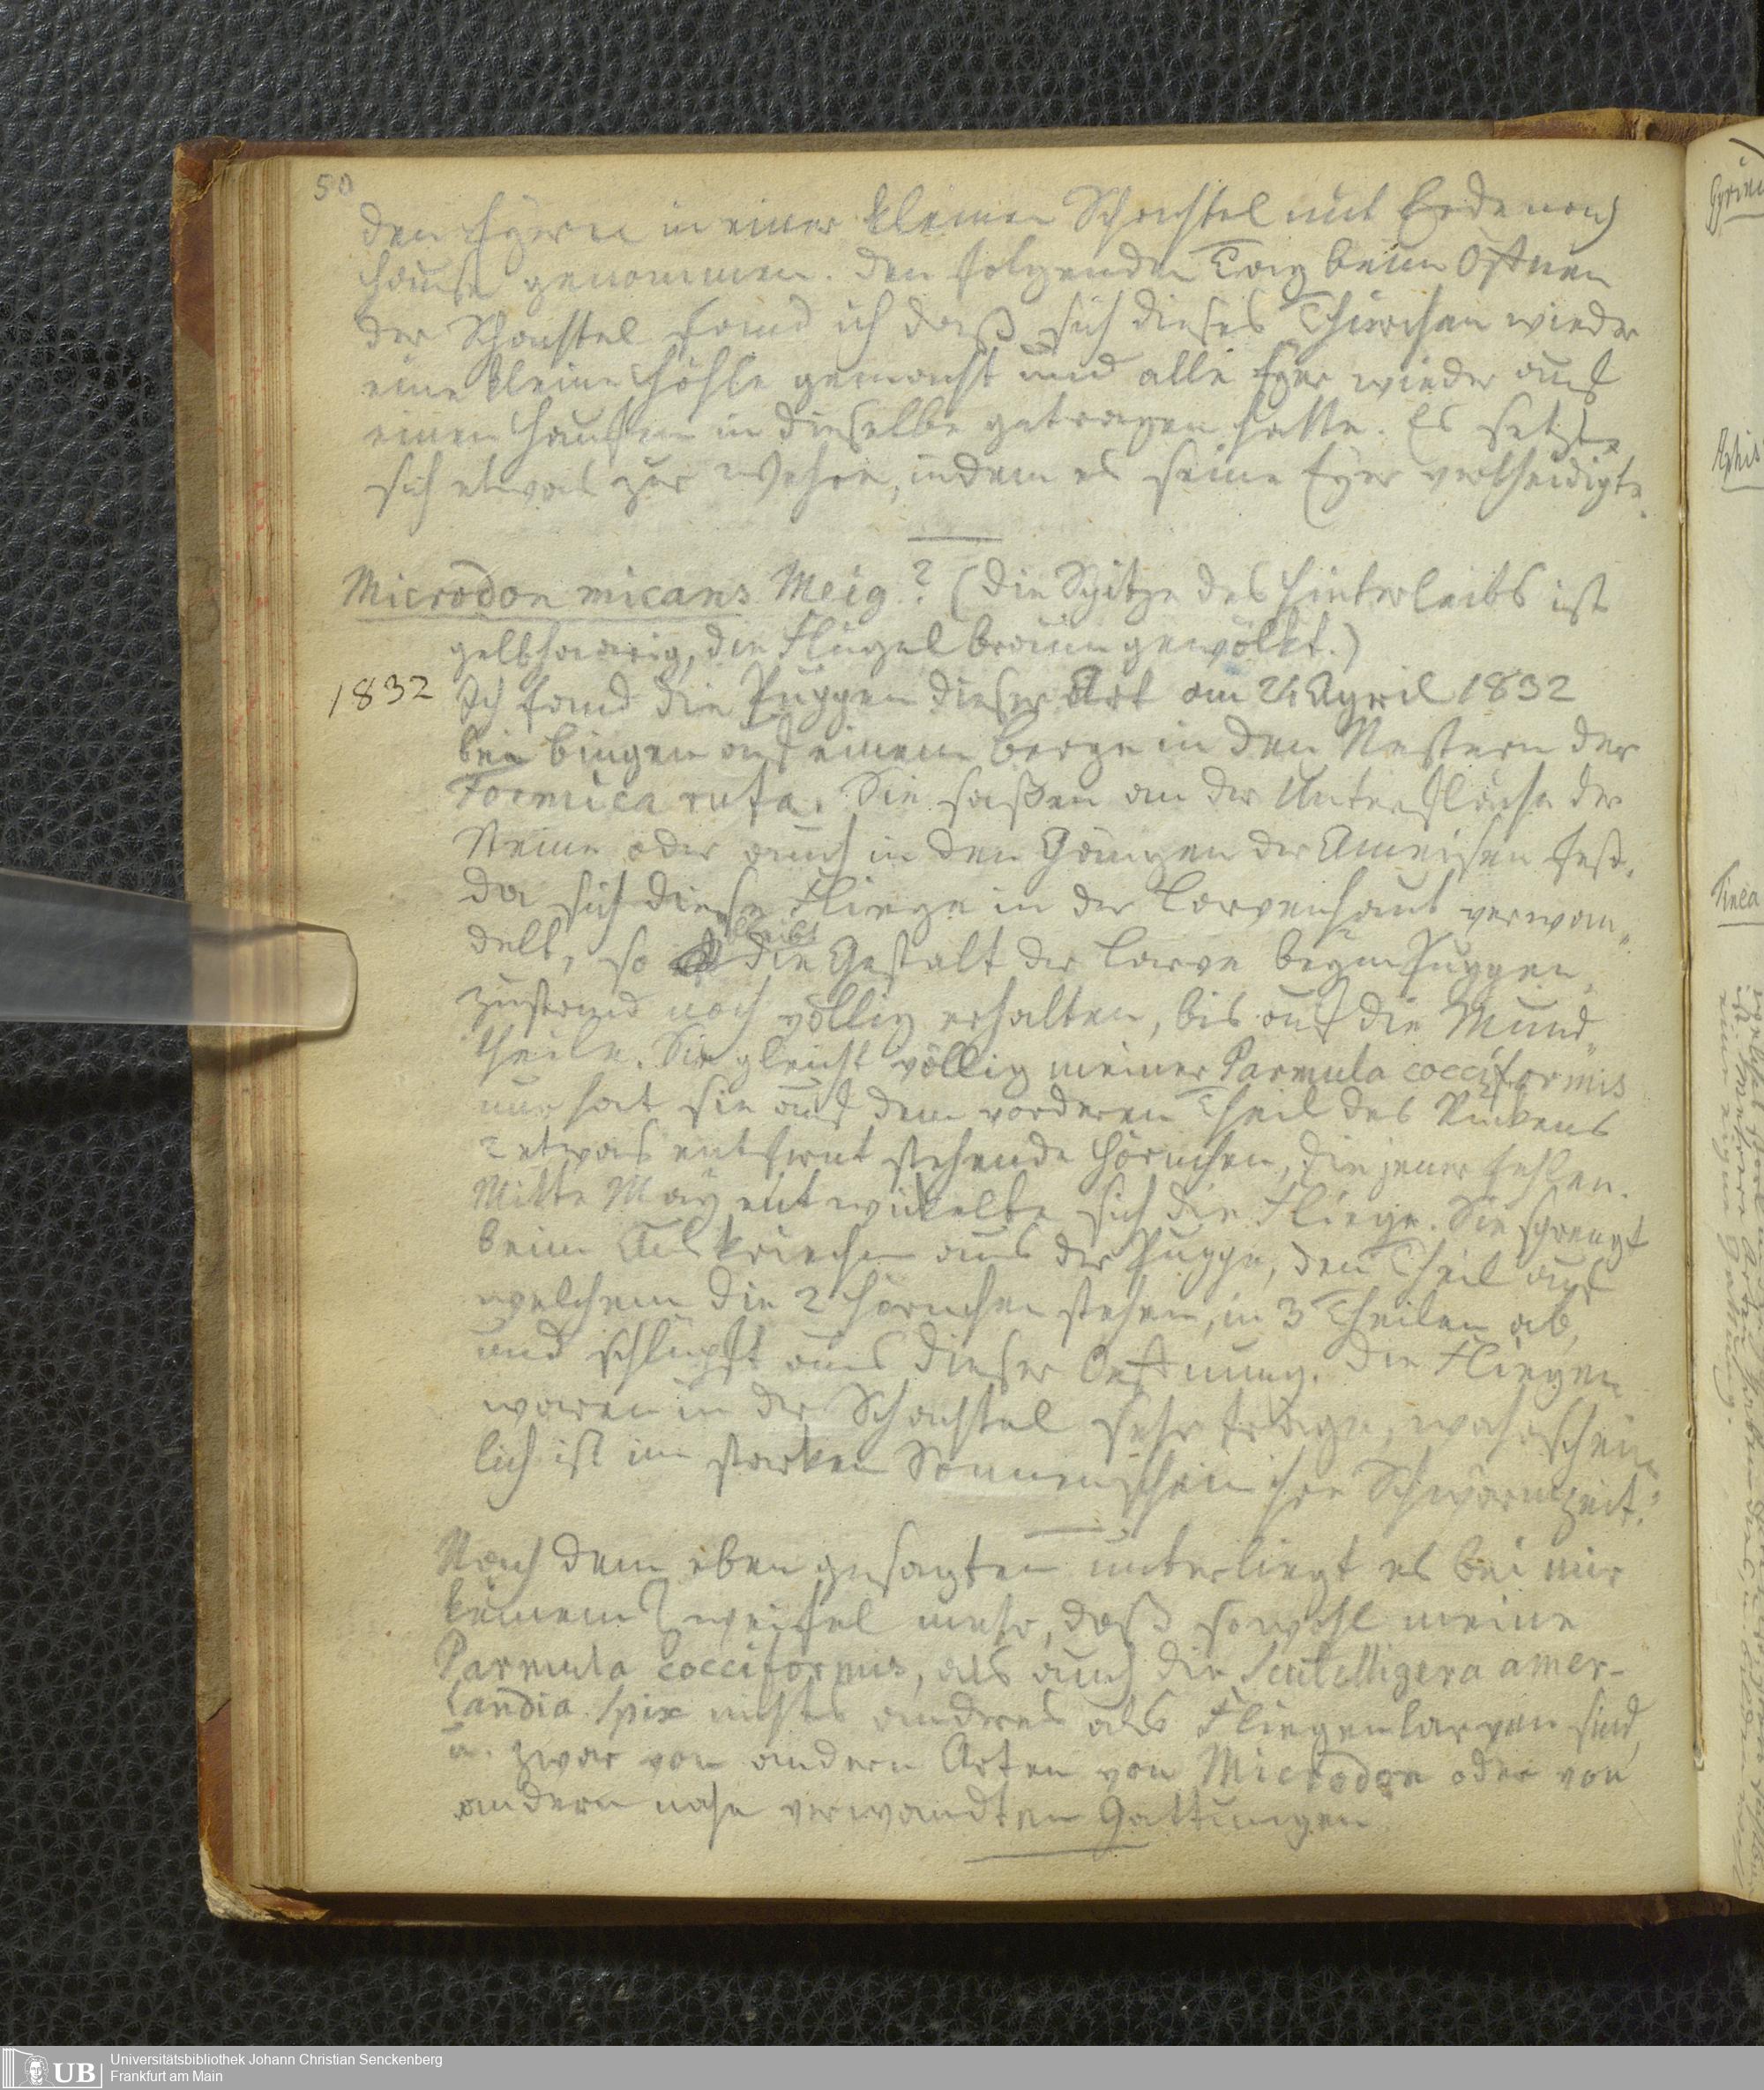 50
den Eyern in einer kleinen Schachtel mit Erde nach
Hause genommen. Den folgenden Tag beim Öffnen
der Schachtel fand ich daß sich dieses Thierchen wieder
eine kleine Höhle gemacht und alle Eyer wieder auf
einen Haufen in dieselbe getragen hatte. Es setzte
sich etwas zur Wehre, indem es seine Eyer vertheidigte.
Microdon micans Meig.? (Die Spitze des Hinterleibs ist
gelbhaarig, die Flügel braun gewölkt.)
1832 Ich fand die Puppen dieser Art am 24 April 1832
bei Bingen auf einem Berge in den Nestern der
Formica rufa. Sie saßen an der Unterfläche der
Steine oder auch in den Gängen der Ameisen fest.
Da sich diese Fliege in der Larvenhaut verwan„
delt, so bleibt die Gestalt der Larve beym Puppen„
zustand noch völlig erhalten, bis auf die Mund„
theile. Sie gleicht völlig meiner Parmula cocciformis
nur hat sie auf dem vorderen Theil des Rückens
2 etwas entfernt stehende Hörnchen, die jener fehlen.
Mitte May entwickelte sich die Fliege. Sie sprengt
beim Auskriechen aus der Puppe, den Theil auf
welchem die 2 Hörnchen stehen, in 3 Theilen ab,
und schlüpft aus dieser Oeffnung. Die Fliegen
waren in der Schachtel sehr träge, wahrschein„
lich ist im starken Sonnenschein ihre Schwärmzeit.
Nach dem eben gesagten unterliegt es bei mir
keinem Zweifel mehr, daß sowohl meine
Parmula cocciformis, als auch die Scutelligera amer-
landia Spix nichts anderes als Fliegenlarven sind,
u. zwar von andern Arten von Microdon oder von
andern nahe verwandten Gattungen.
Gyrin
Aphis
Tinea
UB
Universitätsbibliothek Johann Christian Senckenberg
Frankfurt am Main